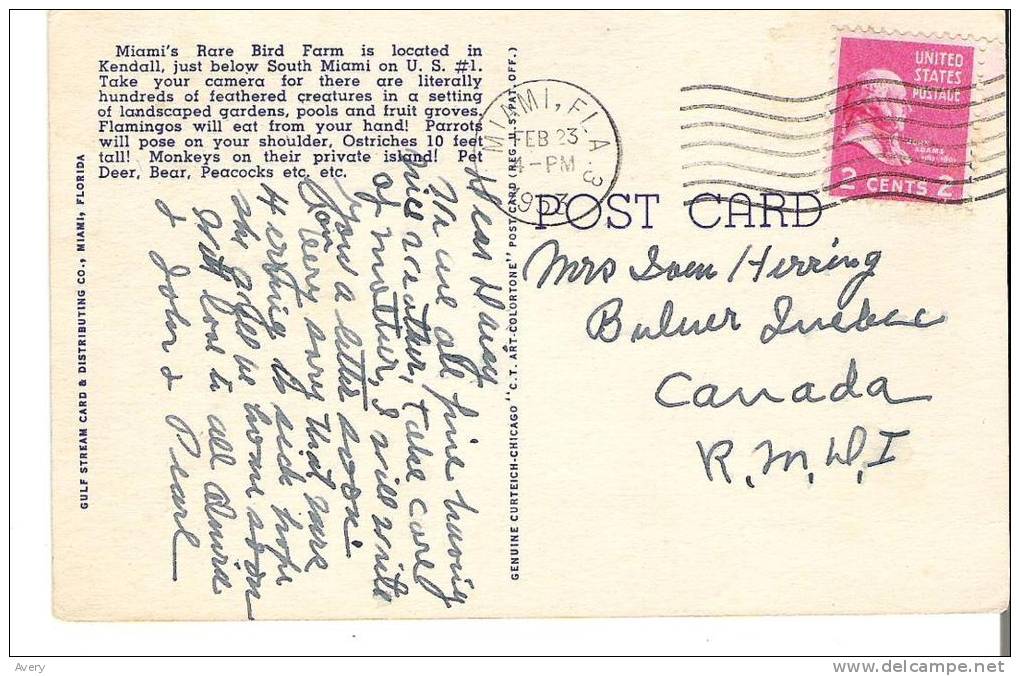 Miami's Rare Bird Farm is located in
Kendall, just below South Miami on U. S. #1.
Take your camera for there are literally
hundreds of feathered creatures in a setting
of landscaped gardens, pools and fruit groves.
Flamingos will eat from your hand! Parrots
will pose on your shoulder, Ostriches 10 feet
tall! Monkeys on their private island! Pet
Deer, Bear, Peacocks etc. etc.
GULF STREAM CARD & DISTRIBUTING CO., MIAMI, FLORIDA
Dear
We are all fine having
nice weather, take care
of mother, I will write
you a letter soon.
very sorry that
is sick hope
she will be home soon
with love to all
& John & Pearl
GENUINE CURTEICH-CHICAGO "C.T. ART-COLORTONE" POST CARD (REG. U.S. PAT. OFF.)
MIAMI, FLA. 3
FEB 23
4-PM
1953
UNITED
STATES
POSTAGE
JOHN
ADAMS
2 CENTS 2
POST CARD
Mrs Herring
Bulwer Quebec
Canada
R.
Avery
www.delcampe.net